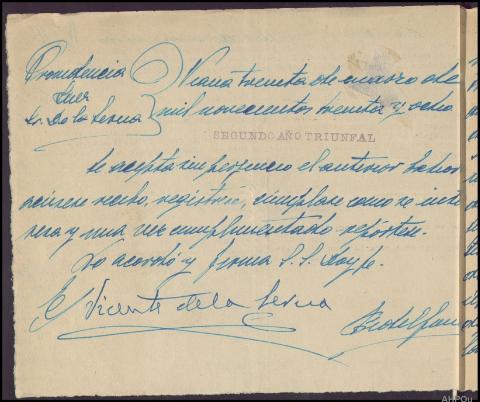 Providencia
Juez
Sr. De la Serna
Viana treinta de marzo de
mil novecientos treinta y ocho
SEGUNDO AÑO TRIUNFAL
Se acepta sin perjuicio el anterior exhor
acúsese recibo, regístrese, cúmplase como se inte
resa y una vez cumplimentado repórtese.
Lo acordó y firma S.S. doy fe.
E/ Vicente de la Serna
AHPOu